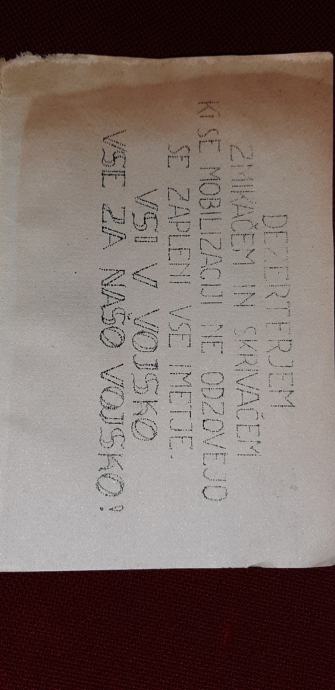 DEZERTERJEM
ZMIKAČEM IN SKRIVAČEM
KI SE MOBILIZACIJI NE ODZOVEJO
SE ZAPLENI VSE IMETJE.
VSI V VOJSKO
VSE ZA NAŠO VOJSKO!